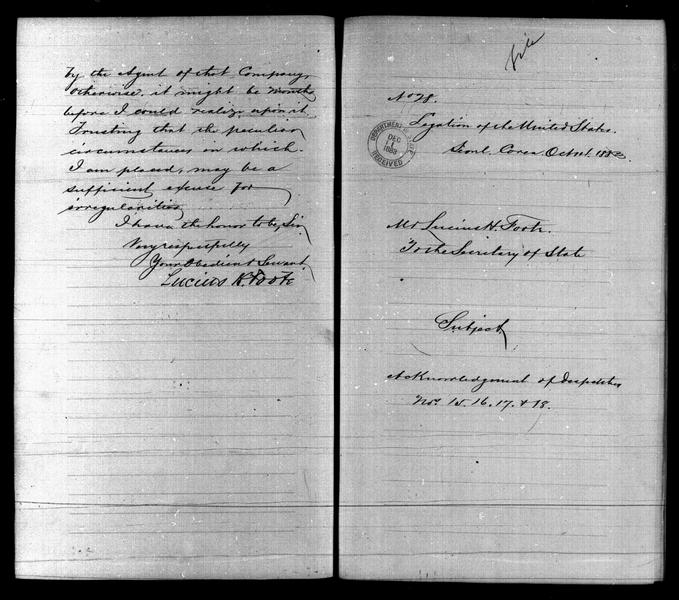 by the Agent of that Company,
Otherwise, it might be months
before I could realize upon it.
Trusting that the peculiar
circumstances in which
I am placed, may be a
sufficient excuse for
irregularities,
I have the honor to be, Sir,
Very respectfully
Your Obedient Servant
Lucius H. Foote
file
No 28.
Legation of the United States.
Seoul, Corea, Oct 1883
DEPARTMENT OF STATE
DEC
1
1883
RECEIVED
Mr Lucius H. Foote.
To the Secretary of State
Subject
Acknowledgment of Despatches
Nos 15. 16. 17. & 18.